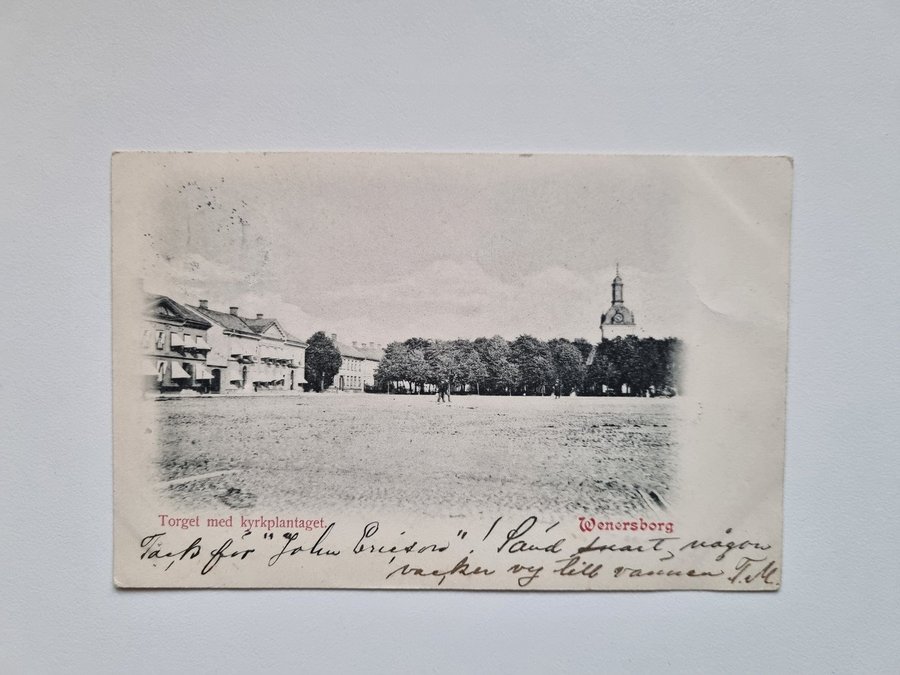 Torget med kyrkplantaget.
Wenersborg
Tack för "John Ericson"! Sänd snart, någon
vacker vy till vännen T.M.